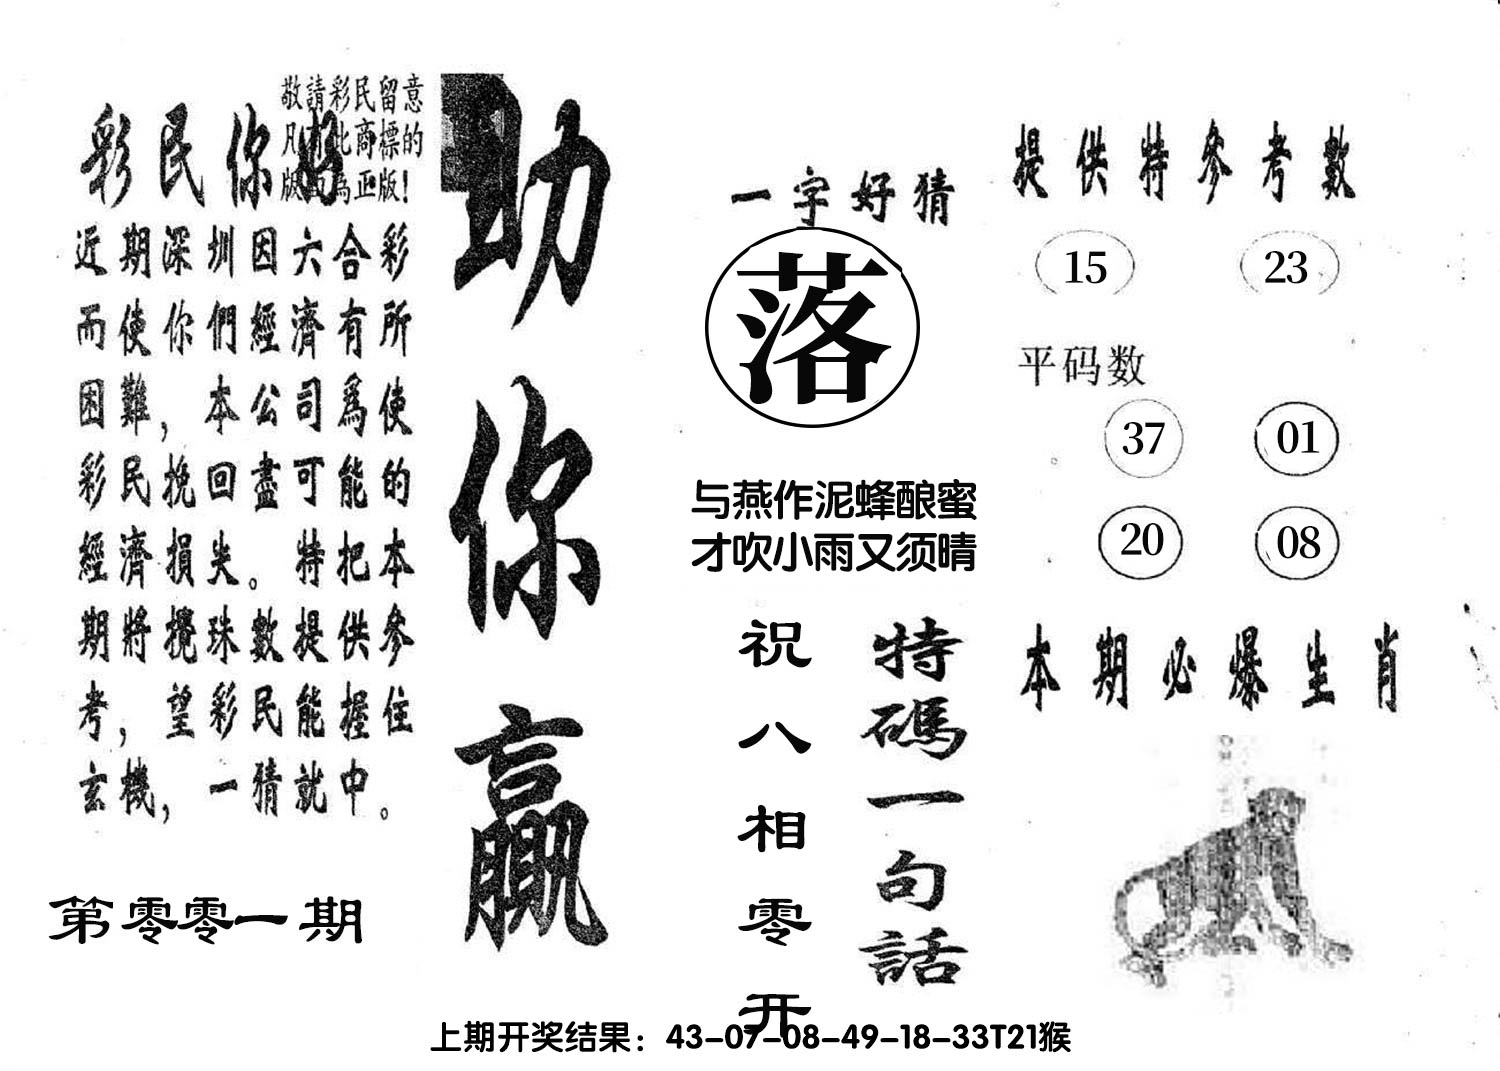 敬請彩民留意
凡有此商標的
版面為正版！
彩民你好
近期深圳因六合彩
而使你們經濟有所
困難，本公司爲使
彩民挽回盡可能的
經濟損失。特把本
期將攪珠數提供參
考，望彩民能握住
玄機，一猜就中。
第零零一期
助你贏
一字好猜
落
与燕作泥蜂酿蜜
才吹小雨又须晴
特碼一句話
祝八相零开
提供特參考數
15 23
平码数
37 01
20 08
本期必爆生肖
上期开奖结果：43-07-08-49-18-33T21猴